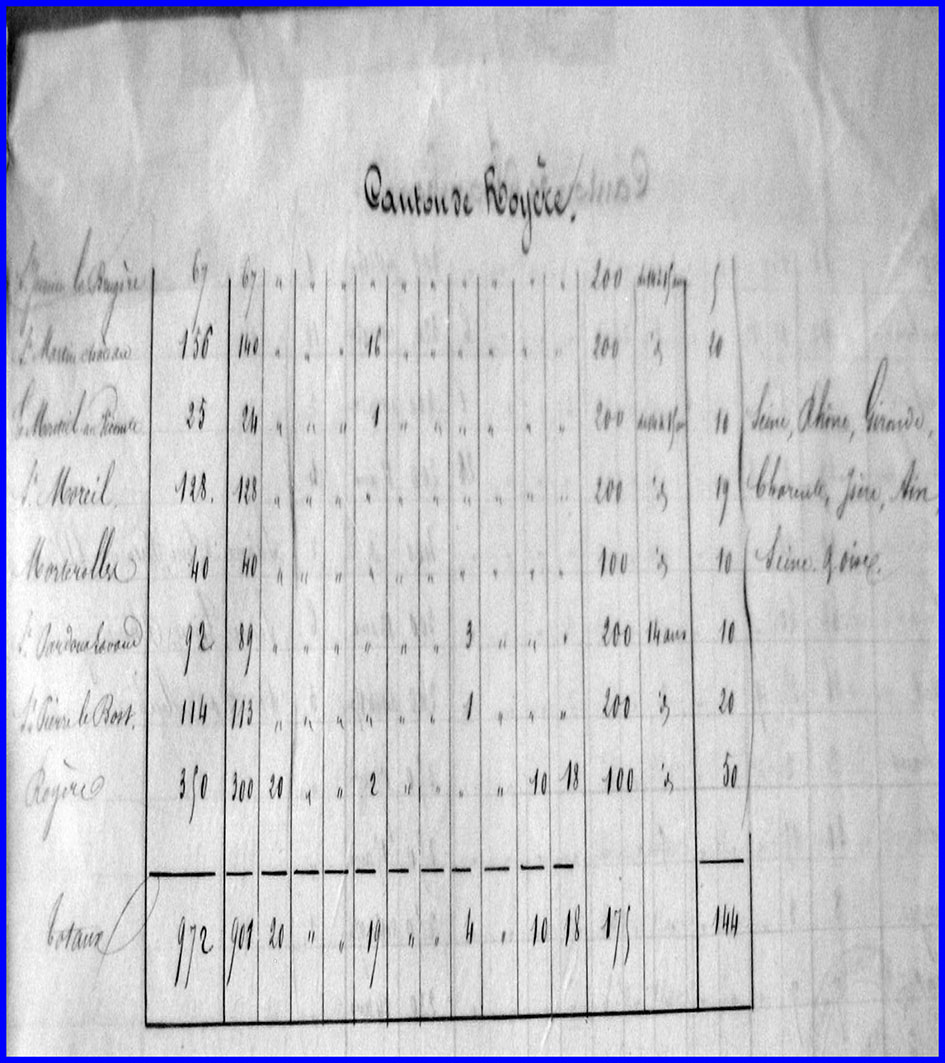 Canton de Royère.
67 67 " " " " " " " " " " 200 5
St Martin château 156 140 " " " 16 " " " " " " 200 id 20
25 24 " " " 1 " " " " " " 200 10 Seine, Rhône, Gironde,
St Moreil. 128. 128 " " " " " " " " " " 200 id 19 Charente, Isère, Ain
Morterolles 40 40 " " " " " " " " " " 100 id 10 Seine & Oise.
St Pardoux Lavaud 92 89 " " " " " " 3 " " " 200 14 ans 10
St Pierre le Bost. 114 113 " " " " " " 1 " " " 200 id 20
Royère 350 300 20 " " 2 " " " " 10 18 100 id 50
totaux 972 901 20 " " 19 " " 4 " 10 18 175 144